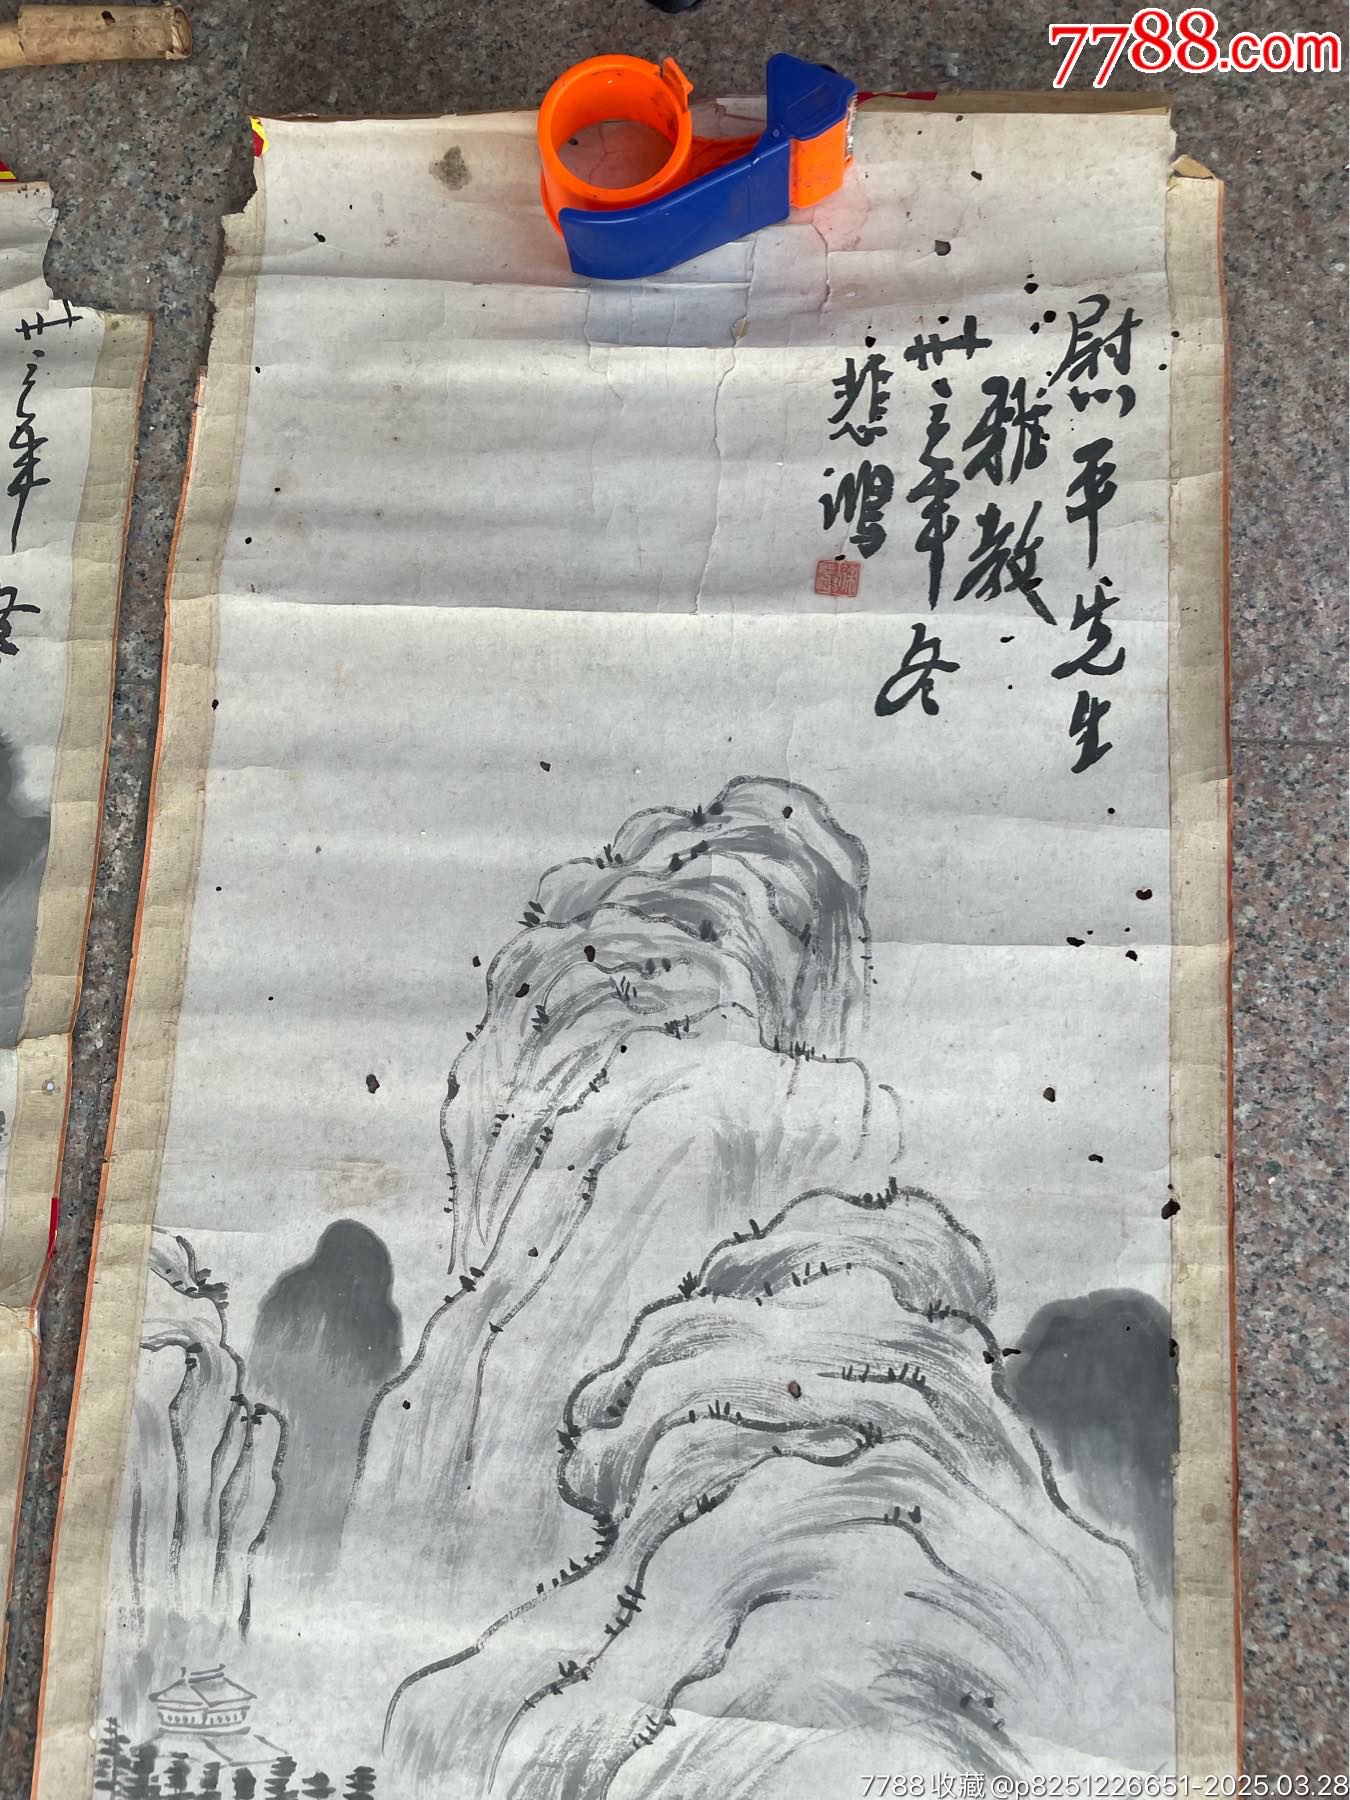 7788.com
慰平先生
雅教
卅三年冬
悲鴻
卅三年冬
7788收藏@p8251226651-2025.03.28